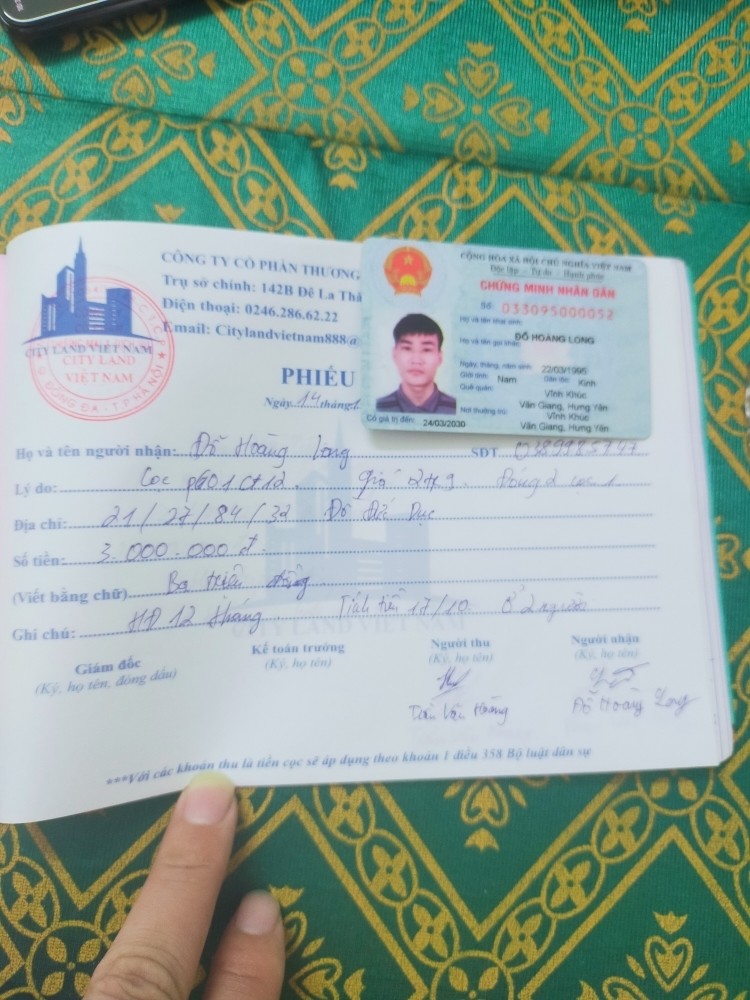 CÔNG TY CỔ PHẦN THƯƠNG
Trụ sở chính: 142B Đê La Thà
Điện thoại: 0246.286.62.22
Email: Citylandvietnam888@
CITY LAND VIET NAM
CITY LAND
VIỆT NAM
Q. ĐỐNG ĐA - T.P HÀ NỘI
PHIẾU
Ngày 14 tháng
CỘNG HÒA XÃ HỘI CHỦ NGHĨA VIỆT NAM
Độc lập - Tự do - Hạnh phúc
CHỨNG MINH NHÂN DÂN
Số: 033095000052
Họ và tên khai sinh:
ĐỖ HOÀNG LONG
Họ và tên gọi khác:
Ngày, tháng, năm sinh: 22/03/1995
Giới tính: Nam Dân tộc: Kinh
Quê quán: Vĩnh Khúc
Văn Giang, Hưng Yên
Nơi thường trú: Vĩnh Khúc
Văn Giang, Hưng Yên
Có giá trị đến: 24/03/2030
Họ và tên người nhận: Đỗ Hoàng Long SĐT
Lý do: Cọc Giá 2tr9. Đóng 2 cọc 1
Địa chỉ: 21/27/84/32 Đỗ Đức Dục
Số tiền: 3.000.000 đ
(Viết bằng chữ) Ba triệu đồng
Ghi chú: HĐ 12 tháng Tính tiền 17/10 Ở 2 người
CITY LAND VIET NAM
Giám đốc Kế toán trưởng Người thu Người nhận
(Ký, họ tên, đóng dấu) (Ký, họ tên) (Ký, họ tên) (Ký, họ tên)
Văn Đỗ Hoàng Long
***Với các khoản thu là tiền cọc sẽ áp dụng theo khoản 1 điều 358 Bộ luật dân sự